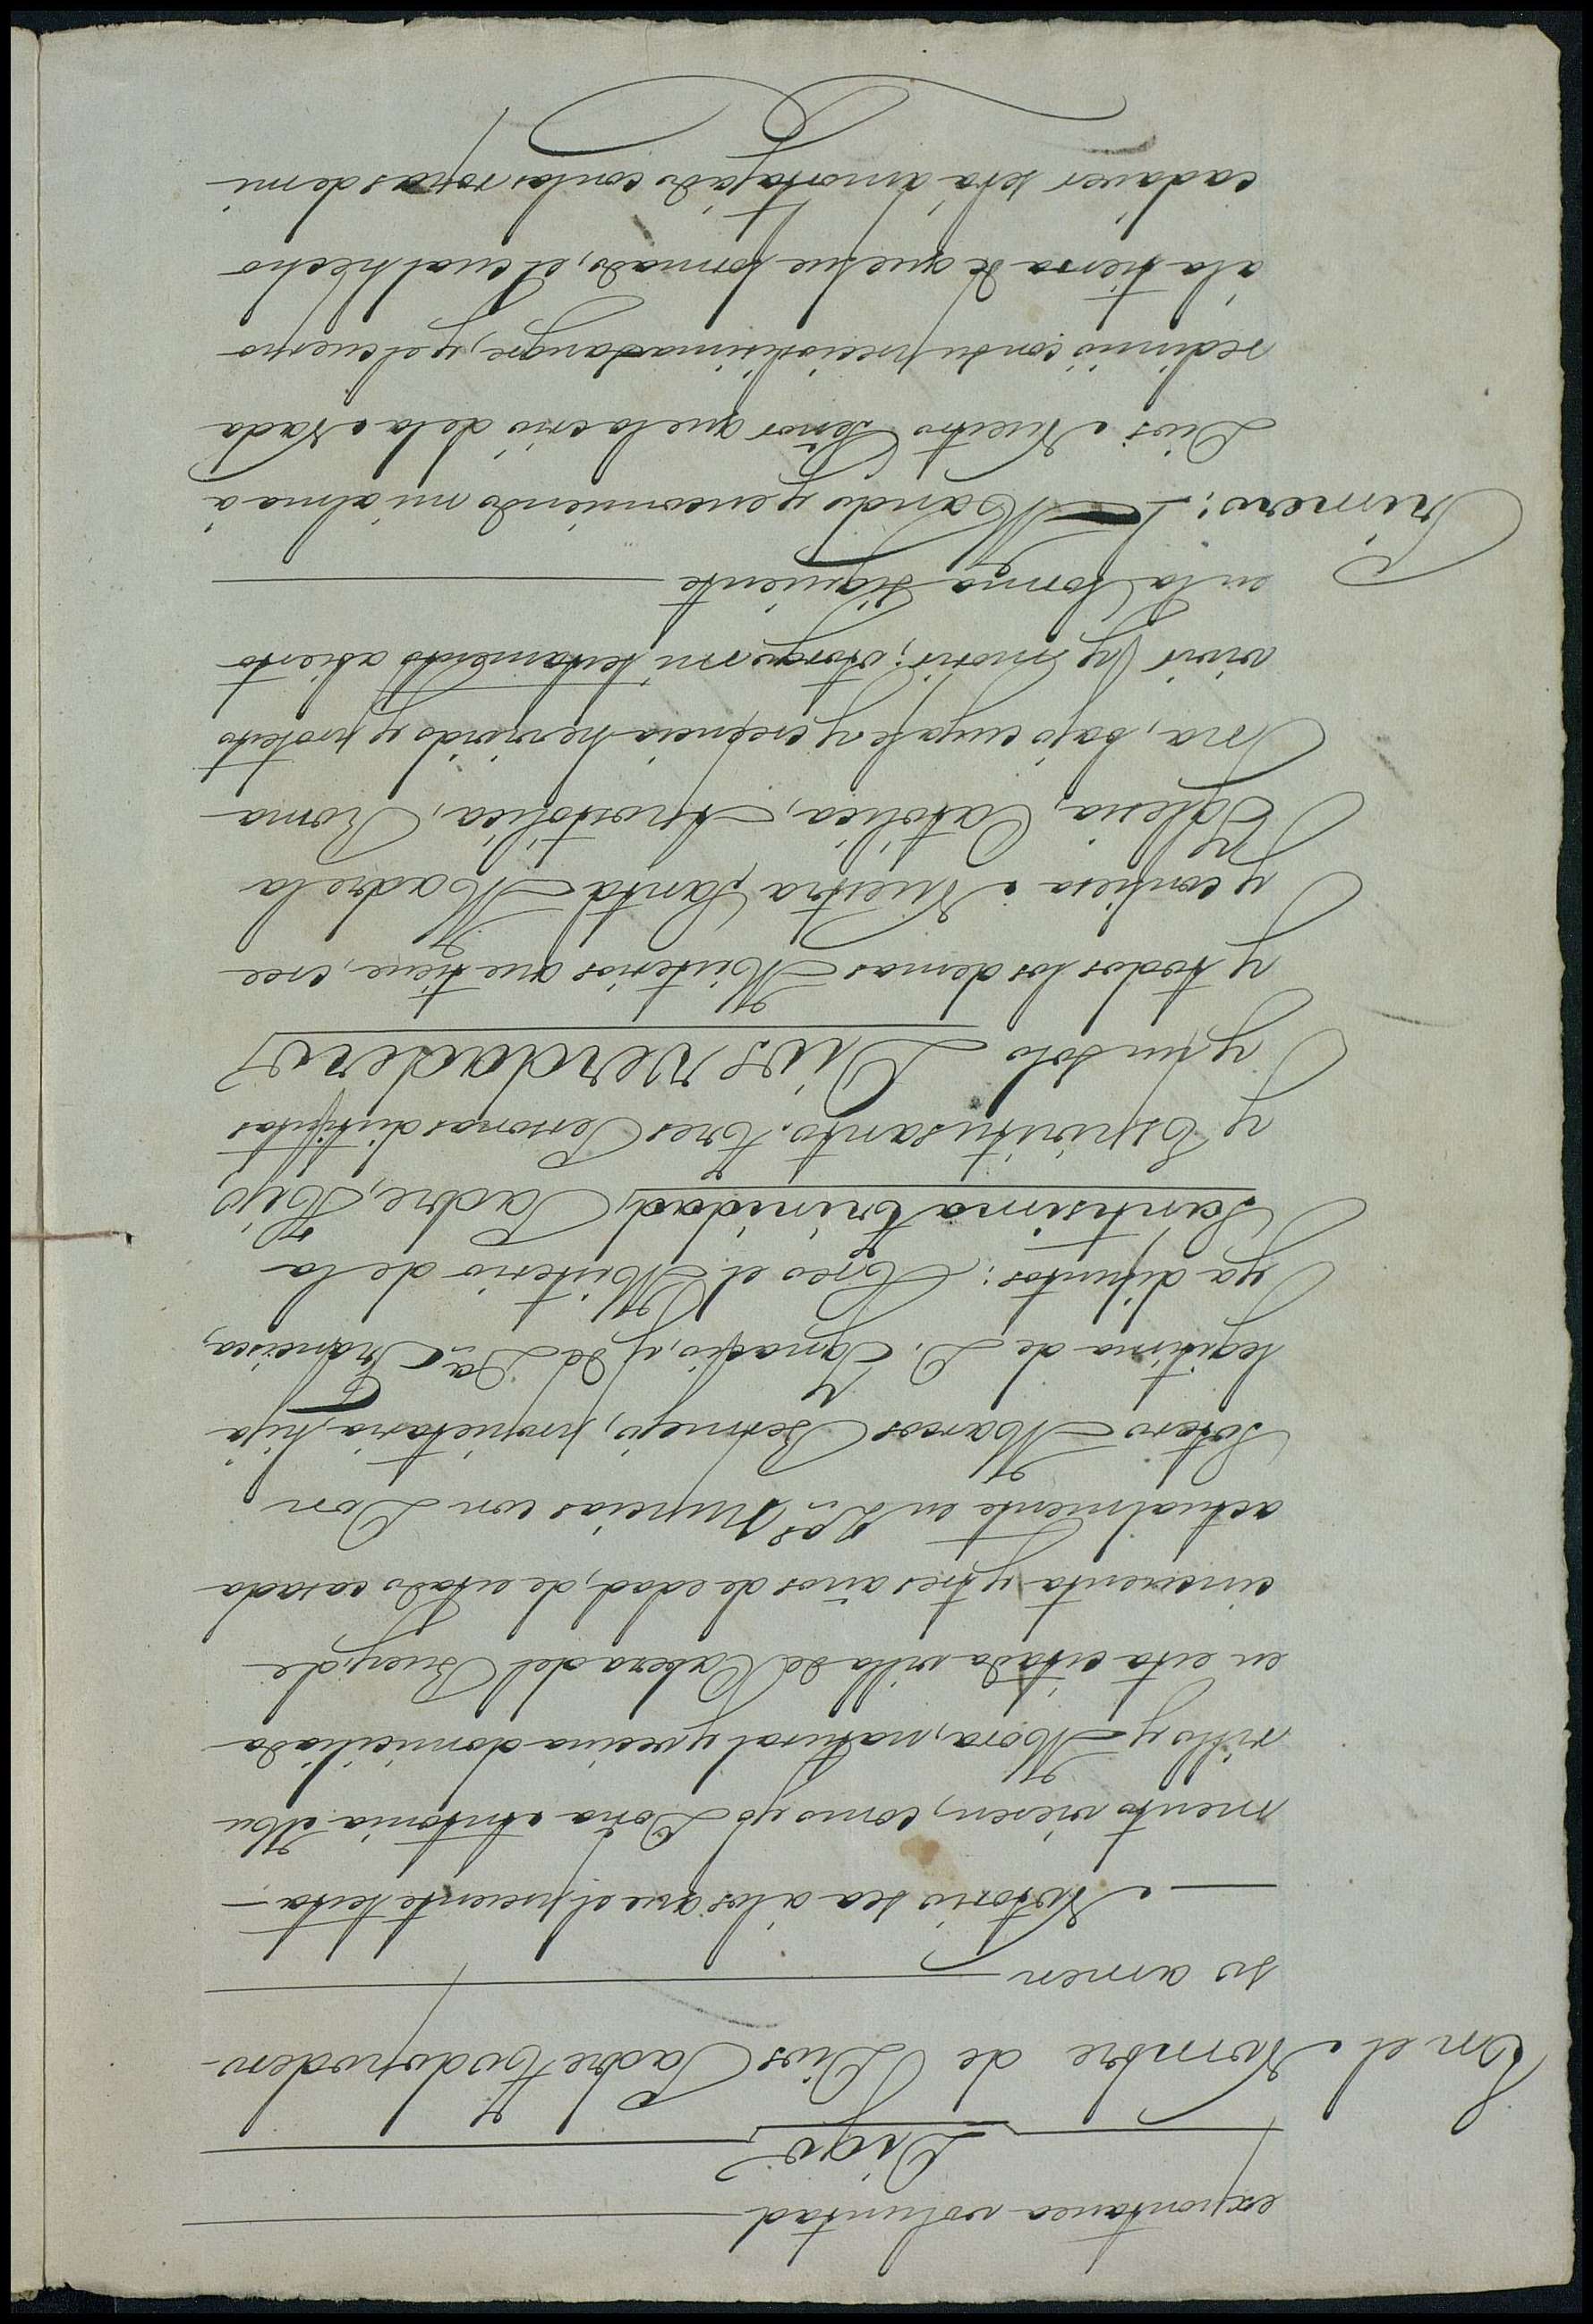 expontanea voluntad
Digo
En el Nombre de Dios Padre todopodero-
so amen
Notorio sea á los que el presente testa-
mento vieren, como yo Doña Antonia Mu-
rillo y Mora, natural y vecina domiciliada
en esta citada villa de Cabeza del Buey, de
cincuenta y tres años de edad, de estado casada
actualmente en 2.as Nupcias con Don
Sotero Marcos Bermejo, propietaria, hija
legitima de D. Ygnacio, y de D.a Francisca,
ya difuntos: Creo el Misterio de la
Santisima trinidad, Padre, Hijo,
y Espiritu santo. tres Personas distintas
y un solo Dios verdadero
y todos los demas Misterios que tiene, cree
y confiesa Nuestra Santa Madre la
Yglesia, Católica, Apostólica, Roma-
na, bajo cuya fe y creencia he vivido y protesto
vivir y morir; otorgo mi testamento abierto
en la forma siguiente
Primero: Mando y encomiendo mi alma á
Dios Nuestro Señor que la crió de la Nada
redimió con su preciosisima Sangre, y el cuerpo
á la tierra de que fue formado, el cual hecho
cadáver será amortajado con las ropas de mi